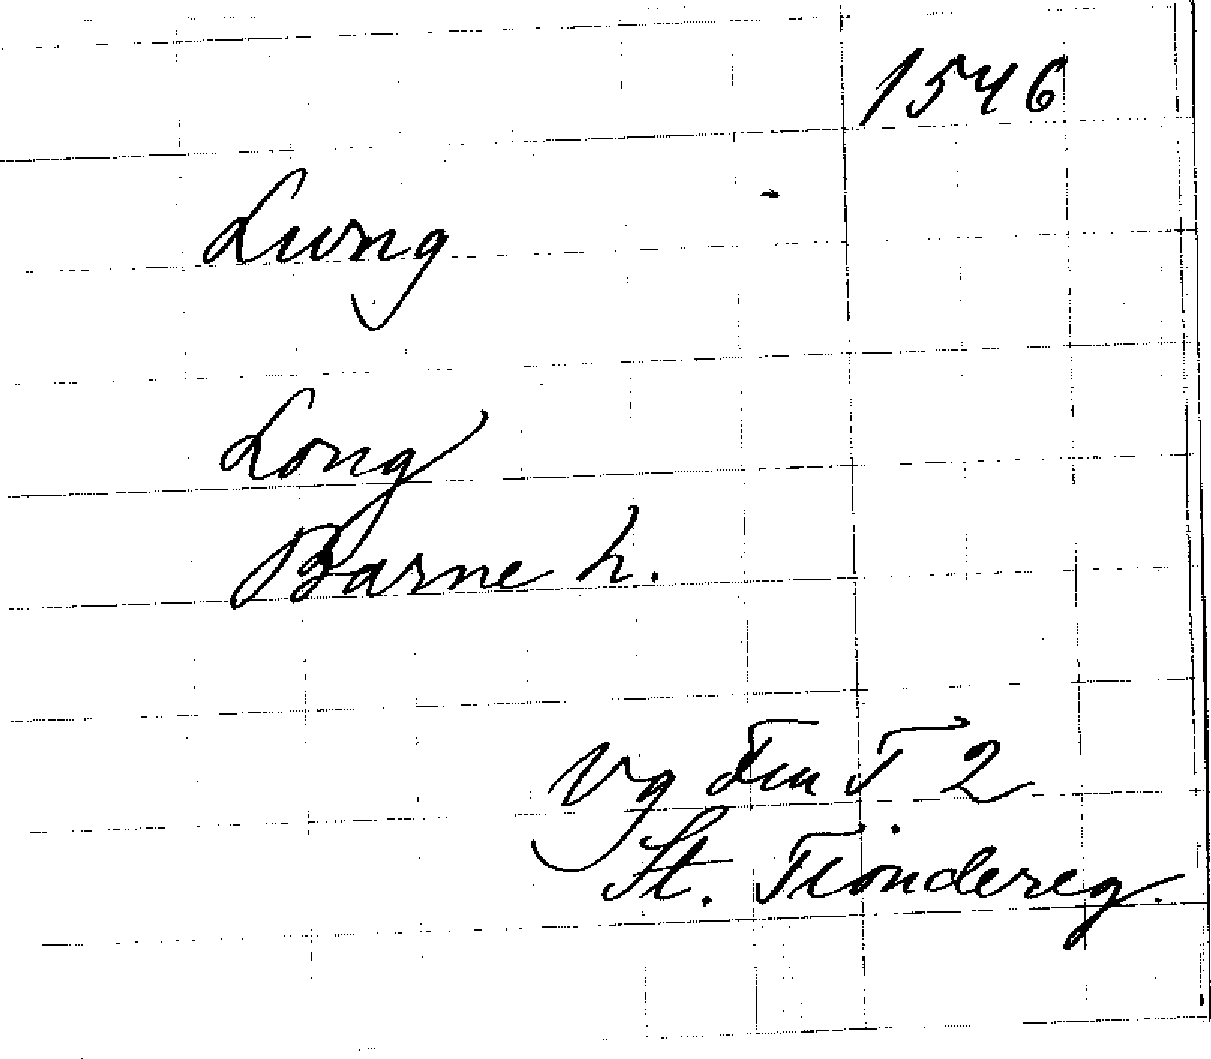 1546
Lwng
Long
Barne h.
Vg Fra T 2
St. Tiondereg.